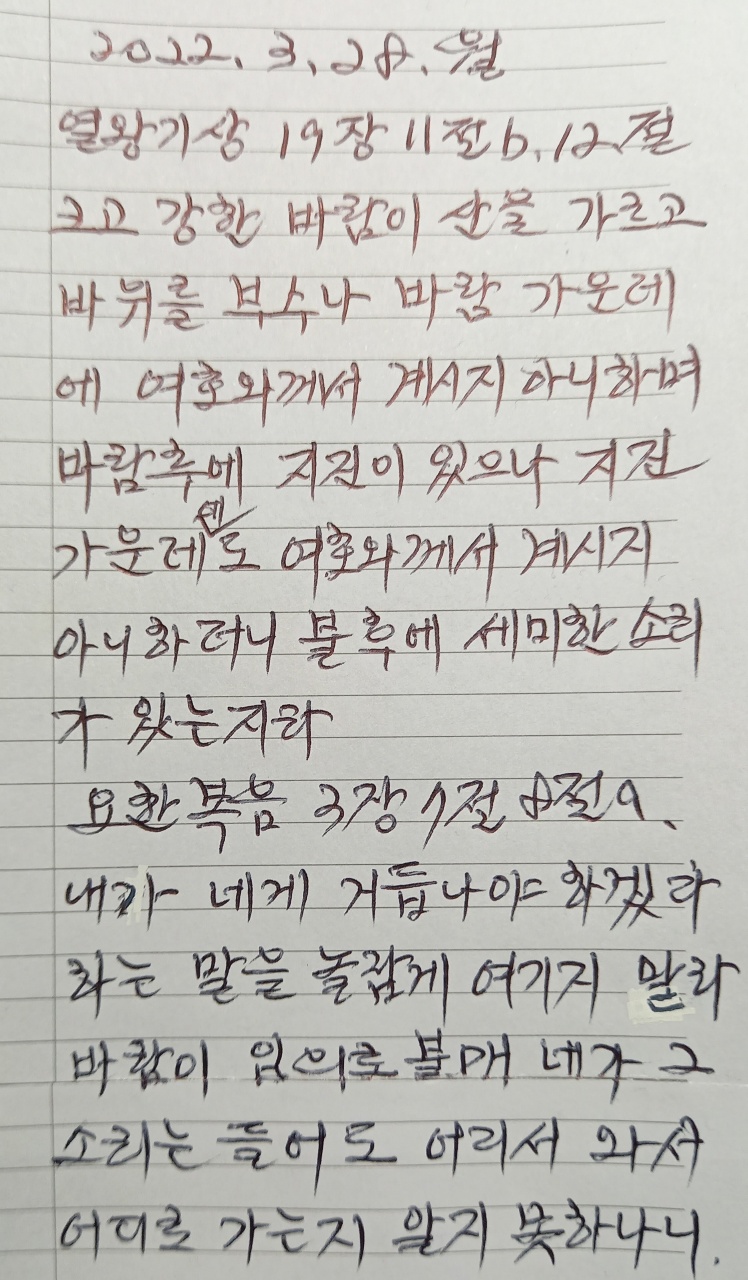 2022. 3. 28. 월
열왕기상 19장 11절b, 12절
크고 강한 바람이 산을 가르고
바위를 부수나 바람 가운데
에 여호와께서 계시지 아니하며
바람후에 지진이 있으나 지진
가운데도 여호와께서 계시지
아니하더니 불후에 세미한 소리
가 있는지라
요한복음 3장 7절 8절a.
내가 네게 거듭나야 하겠다
하는 말을 놀랍게 여기지 말라
바람이 임의로 불매 네가 그
소리는 들어도 어디서 와서
어디로 가는지 알지 못하나니.